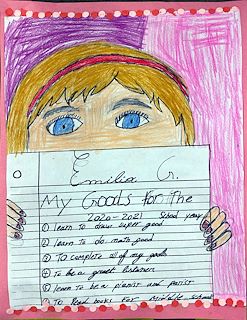 Emilia G.
My Goals for the
2020-2021 School year
① learn to draw super good
② learn to do math good
③ To complete all of my goals
④ To be a great listener
⑤ learn to be a pianist and
To Read books For Middle school